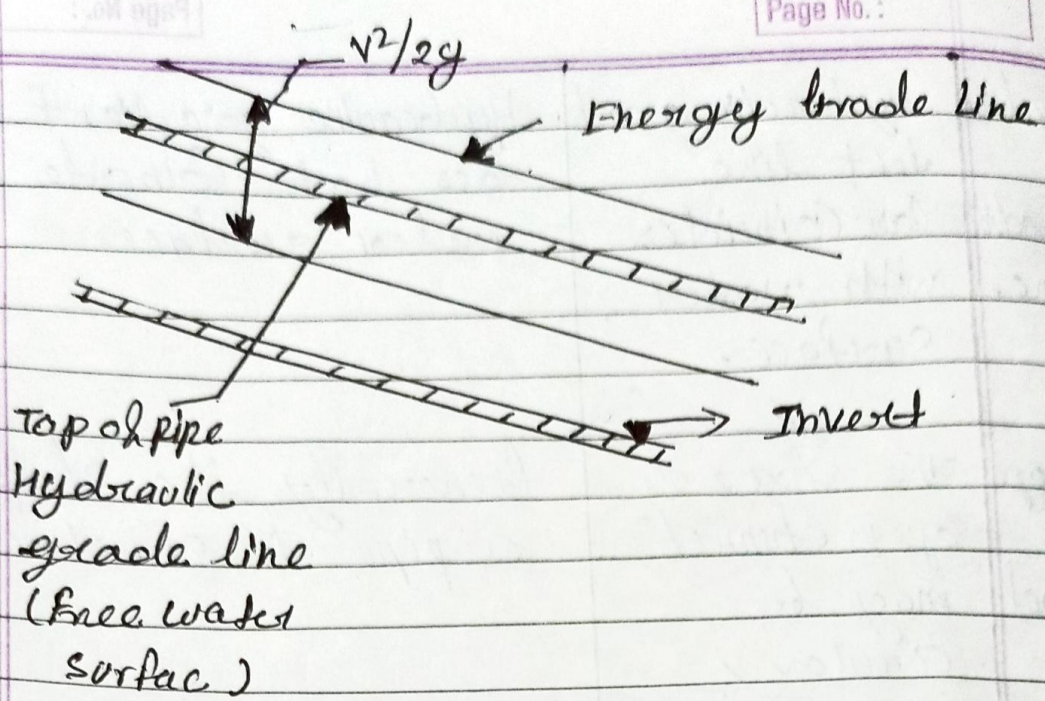 Page No. :
V²/2g
Energy Grade Line
Invert
Top of pipe
Hydraulic
grade line
(Free water
surfac)